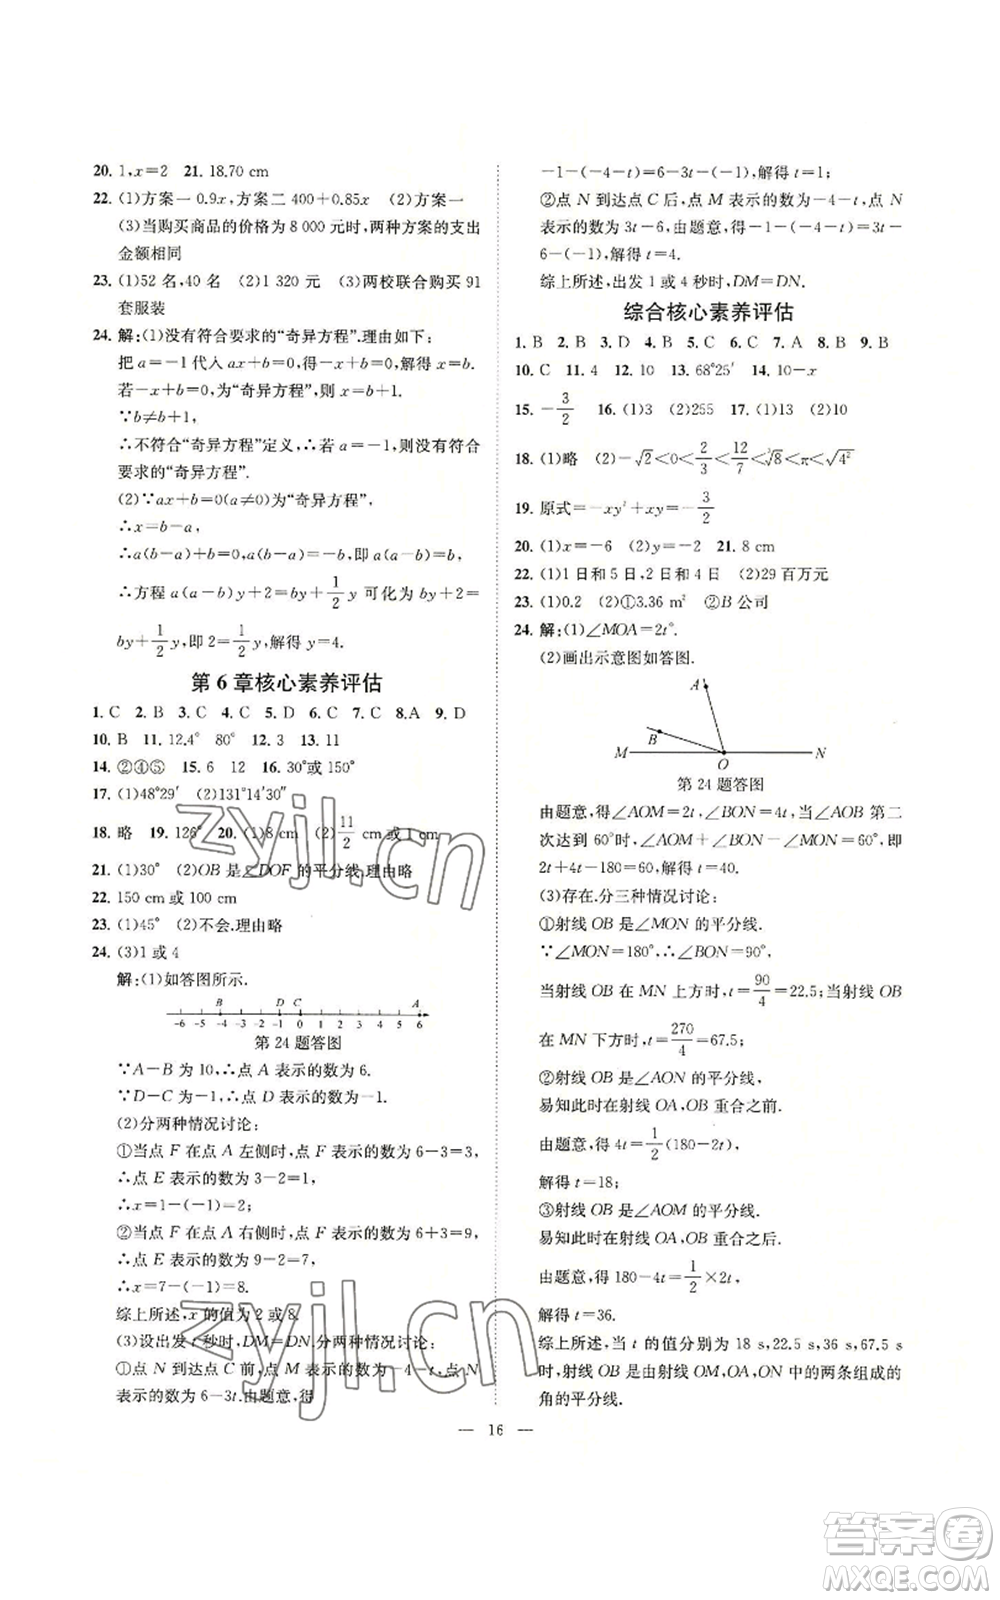 20. 1,x=2　21. 18.70 cm
22. (1)方案一 0.9x,方案二 400+0.85x　(2)方案一
(3)当购买商品的价格为 8 000 元时,两种方案的支出
金额相同
23. (1)52 名,40 名　(2)1 320 元　(3)两校联合购买 91
套服装
24. 解:(1)没有符合要求的“奇异方程”.理由如下:
把 a=-1 代入 ax+b=0,得-x+b=0,解得 x=b.
若-x+b=0,为“奇异方程”,则 x=b+1.
∵b≠b+1,
∴不符合“奇异方程”定义,∴若 a=-1,则没有符合要
求的“奇异方程”.
(2)∵ax+b=0(a≠0)为“奇异方程”,
∴x=b-a,
∴a(b-a)+b=0,a(b-a)=-b,即 a(a-b)=b,
∴方程 a(a-b)y+2=by+1/2 y 可化为 by+2=
by+1/2 y,即 2=1/2 y,解得 y=4.
第 6 章核心素养评估
1. C　2. B　3. C　4. C　5. D　6. C　7. C　8. A　9. D
10. B　11. 12.4°　80°　12. 3　13. 11
14. ②④⑤　15. 6　12　16. 30°或 150°
17. (1)48°29′　(2)131°14′30″
18. 略　19. 126°　20. (1)8 cm　(2)11/2 cm 或 1 cm
21. (1)30°　(2)OB 是∠DOF 的平分线,理由略
22. 150 cm 或 100 cm
23. (1)45°　(2)不会.理由略
24. (3)1 或 4
解:(1)如答图所示.
B D C A
-6 -5 -4 -3 -2 -1 0 1 2 3 4 5 6
第 24 题答图
∵A-B 为 10,∴点 A 表示的数为 6.
∵D-C 为-1,∴点 D 表示的数为-1.
(2)分两种情况讨论:
①当点 F 在点 A 左侧时,点 F 表示的数为 6-3=3,
∴点 E 表示的数为 3-2=1,
∴x=1-(-1)=2;
②当点 F 在点 A 右侧时,点 F 表示的数为 6+3=9,
∴点 E 表示的数为 9-2=7,
∴x=7-(-1)=8.
综上所述,x 的值为 2 或 8.
(3)设出发 t 秒时,DM=DN.分两种情况讨论:
①点 N 到达点 C 前,点 M 表示的数为-4-t,点 N
表示的数为 6-3t.由题意,得
-1-(-4-t)=6-3t-(-1),解得 t=1;
②点 N 到达点 C 后,点 M 表示的数为-4-t,点 N
表示的数为 3t-6,由题意,得-1-(-4-t)=3t-
6-(-1),解得 t=4.
综上所述,出发 1 或 4 秒时,DM=DN.
综合核心素养评估
1. B　2. B　3. D　4. B　5. C　6. C　7. A　8. B　9. B
10. C　11. 4　12. 10　13. 68°25′　14. 10-x
15. -3/2　16. (1)3　(2)255　17. (1)13　(2)10
18. (1)略　(2)-√2<0<2/3<12/7<∛8<π<√4²
19. 原式=-xy²+xy=-3/2
20. (1)x=-6　(2)y=-2　21. 8 cm
22. (1)1 日和 5 日,2 日和 4 日　(2)29 百万元
23. (1)0.2　(2)①3.36 m²　②B 公司
24. 解:(1)∠MOA=2t°.
(2)画出示意图如答图.
A
B
M O N
第 24 题答图
由题意,得∠AOM=2t,∠BON=4t,当∠AOB 第二
次达到 60°时,∠AOM+∠BON-∠MON=60°,即
2t+4t-180=60,解得 t=40.
(3)存在.分三种情况讨论:
①射线 OB 是∠MON 的平分线.
∵∠MON=180°,∴∠BON=90°,
当射线 OB 在 MN 上方时,t=90/4=22.5;当射线 OB
在 MN 下方时,t=270/4=67.5;
②射线 OB 是∠AON 的平分线,
易知此时在射线 OA,OB 重合之前.
由题意,得 4t=1/2(180-2t),
解得 t=18;
③射线 OB 是∠AOM 的平分线.
易知此时在射线 OA,OB 重合之后.
由题意,得 180-4t=1/2×2t,
解得 t=36.
综上所述,当 t 的值分别为 18 s,22.5 s,36 s,67.5 s
时,射线 OB 是由射线 OM,OA,ON 中的两条组成的
角的平分线.
— 16 —
zyjl.cn
zyjl.cn
答案圈
MXQE.COM